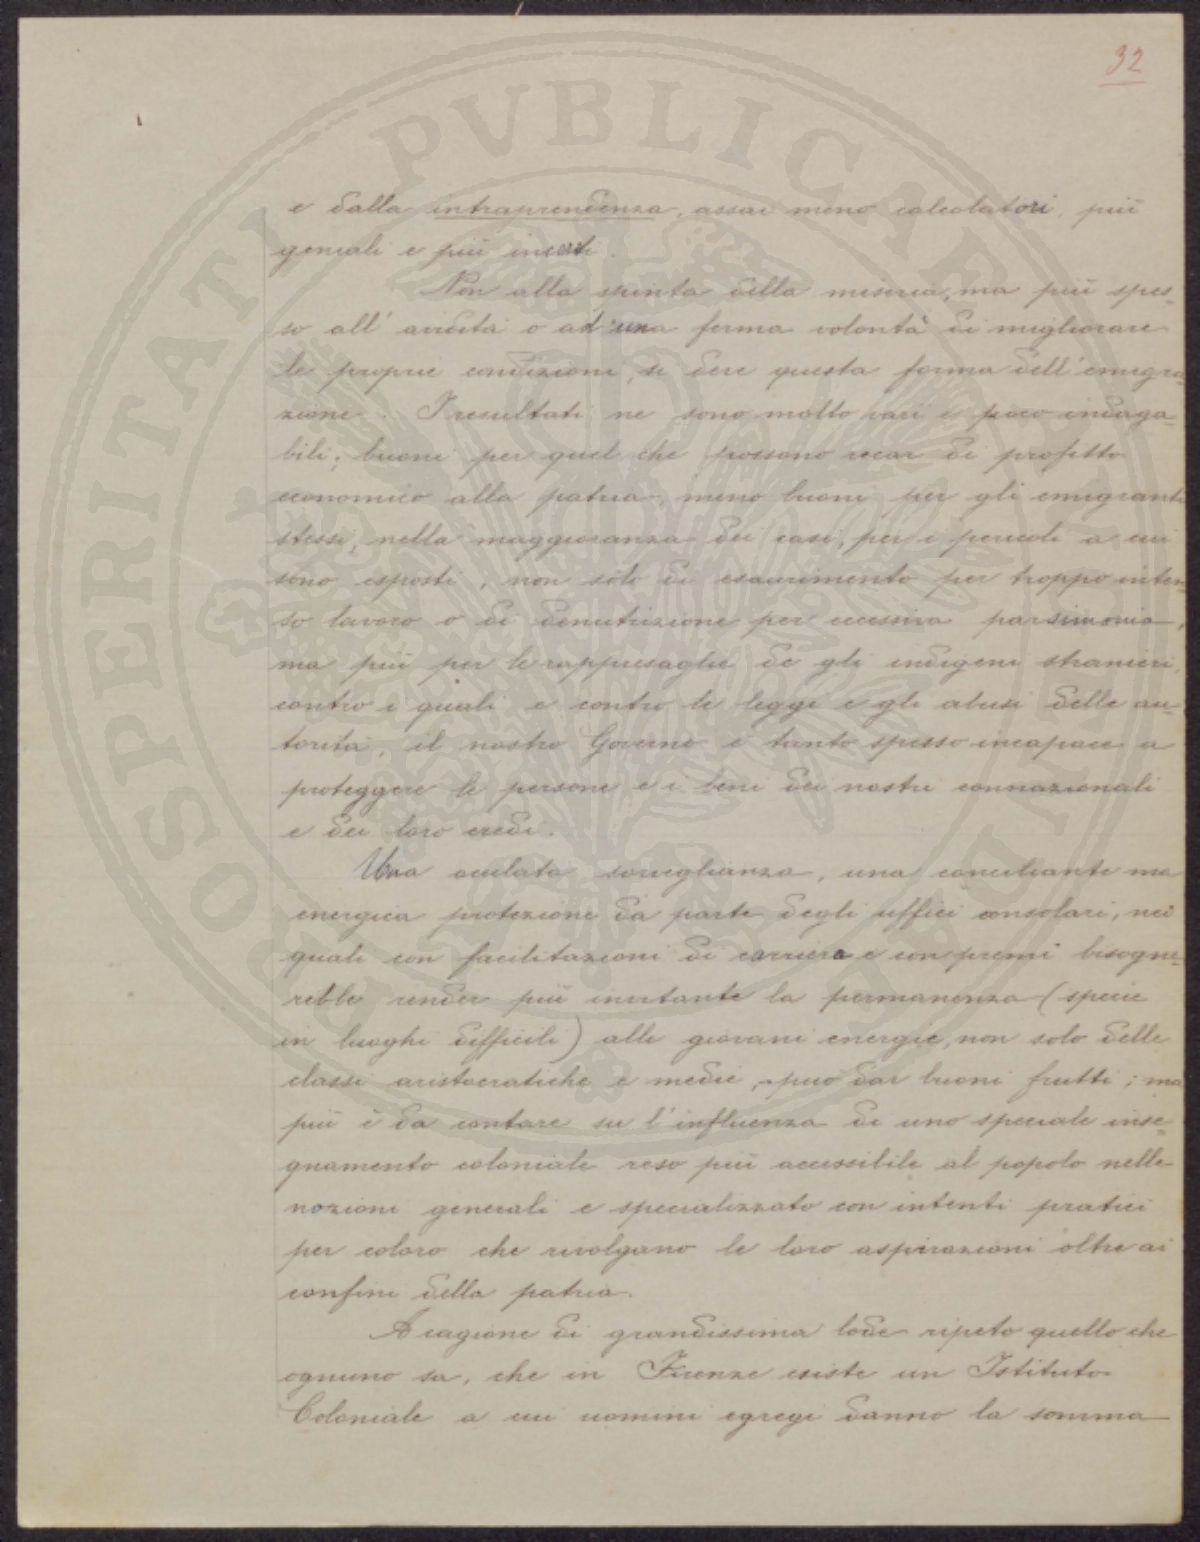 32
e dalla intraprendenza, assai meno calcolatori, più
geniali e più incerti.
Non alla spinta della miseria, ma più spes-
so all' avidità o ad una ferma volontà di migliorare
le proprie condizioni, si deve questa forma dell' emigra-
zione. I resultati ne sono molto varî e poco indaga-
bili; buoni per quel che possono recar di profitto
economico alla patria, meno buoni per gli emigranti
stessi, nella maggioranza dei casi, per i pericoli a cui
sono esposti, non solo di esaurimento per troppo inten-
so lavoro o di denutrizione per eccessiva parsimonia,
ma più per le rappresaglie de gli indigeni stranieri,
contro i quali e contro le leggi e gli abusi delle au-
torità, il nostro Governo è tanto spesso incapace a
proteggere le persone e i beni dei nostri connazionali
e dei loro eredi.
Una oculata sorveglianza, una conciliante ma
energica protezione da parte degli uffici consolari, nei
quali con facilitazioni di carriera e con premi bisogne-
rebbe render più invitante la permanenza (specie
in luoghi difficili) alle giovani energie, non solo delle
classi aristocratiche e medie, può dar buoni frutti; ma
più è da contare su l' influenza di uno speciale inse-
gnamento coloniale reso più accessibile al popolo nelle
nozioni generali e specializzato con intenti pratici
per coloro che rivolgano le loro aspirazioni oltre ai
confini della patria.
A cagione di grandissima lode ripeto quello che
ognuno sa, che in Firenze esiste un Istituto
Coloniale a cui uomini egregi danno la somma
PROSPERITATI PVBLICAE